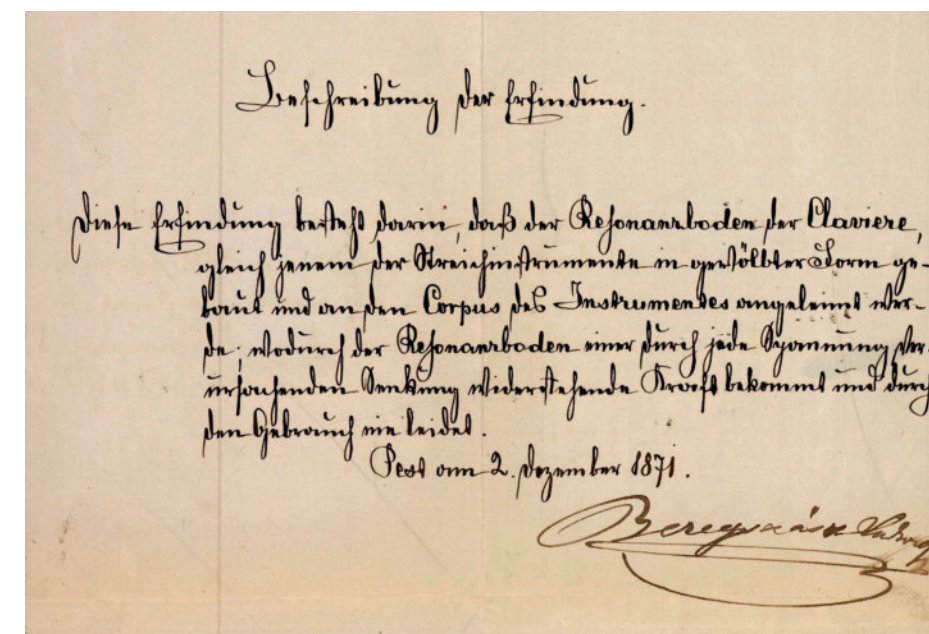 Beschreibung der Erfindung.
Diese Erfindung besteht darin, daß der Resonanzboden der Claviere,
gleich jenem der Streichinstrumente in gewölbter Form ge-
baut und an den Corpus des Instrumentes angeleimt wer-
de; wodurch der Resonanzboden einer durch jede Spannung ver-
ursachenden Senkung widerstehende Kraft bekommt und durch
den Gebrauch nie leidet.
Pest am 2. Dezember 1871.
Beregszászy